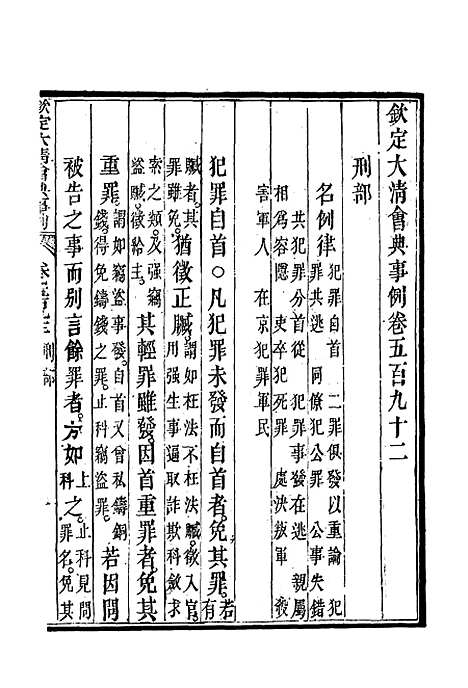 欽定大清會典事例卷五百九十二
刑部
名例律 犯罪自首 二罪俱發以重論 犯
罪共逃 同僚犯公罪 公事失錯
共犯罪分首從 犯罪事發在逃 親屬
相為容隱 吏卒犯死罪 處決叛軍 殺
害軍人 在京犯罪軍民
犯罪自首○凡犯罪未發而自首者免其罪若有
贓者其罪雖免猶徵正贓謂如枉法不枉法贓徵入官用強生事逼取詐欺科斂求
索之類及強竊盜贓徵給主其輕罪雖發因首重罪者免其
重罪謂如竊盜事發自首又曾私鑄銅錢得免鑄錢之罪止科竊盜罪若因問
被告之事而別言餘罪者亦如上科之止科見問罪名免其
欽定大清會典事例 刑部